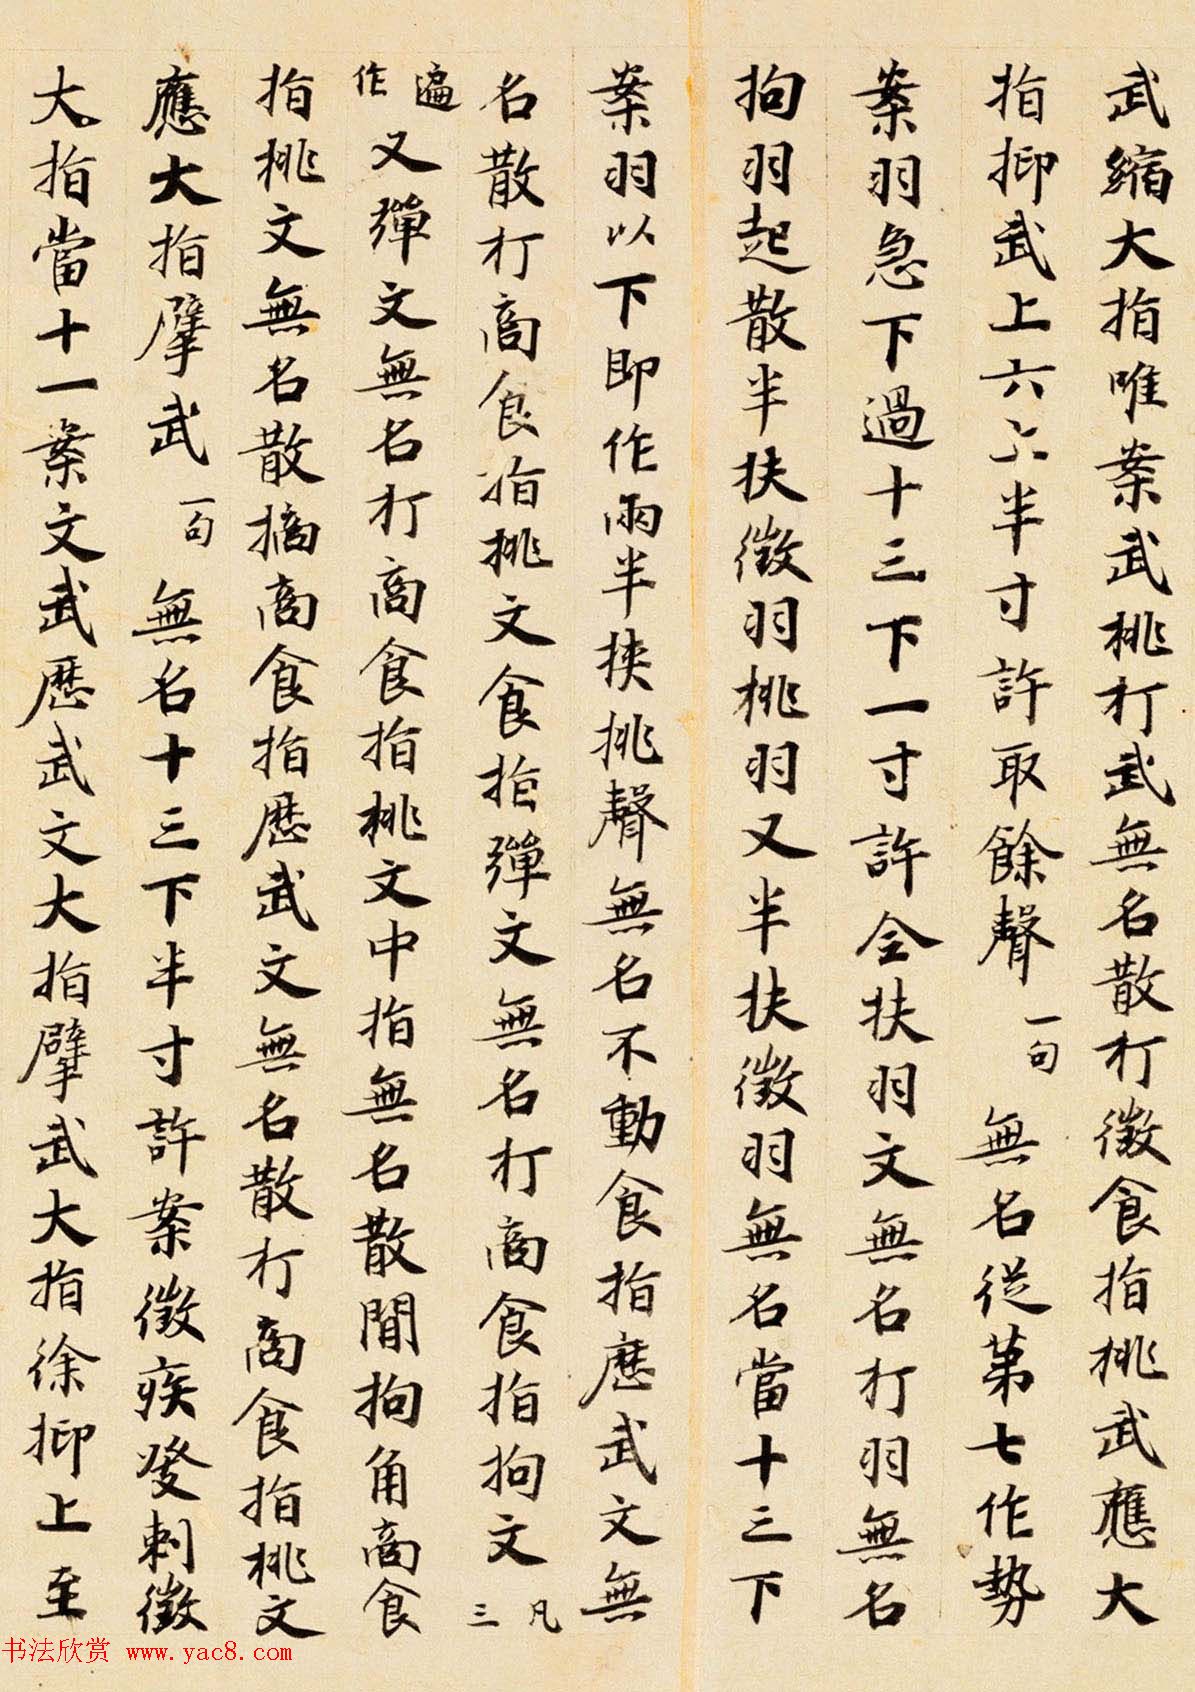 武縮大指唯案武桃打武無名散打徵食指桃武應大
指抑武上六六半寸許取餘聲一句無名從第七作勢
案羽急下過十三下一寸許全扶羽文無名打羽無名
拘羽起散半扶徵羽桃羽又半扶徵羽無名當十三下
案羽以下即作兩半挟挑聲無名不動食指歷武文無
名散打商食指挑文食指彈文無名打商食指拘文凡三
遍作又彈文無名打商食指桃文中指無名散閒拘角商食
指桃文無名散摘商食指歷武文無名散打商食指桃文
應大指擘武一句無名十三下半寸許案徵疾發刺徵
大指當十一案文武歷武文大指擘武大指徐抑上至
书法欣赏 www.yac8.com